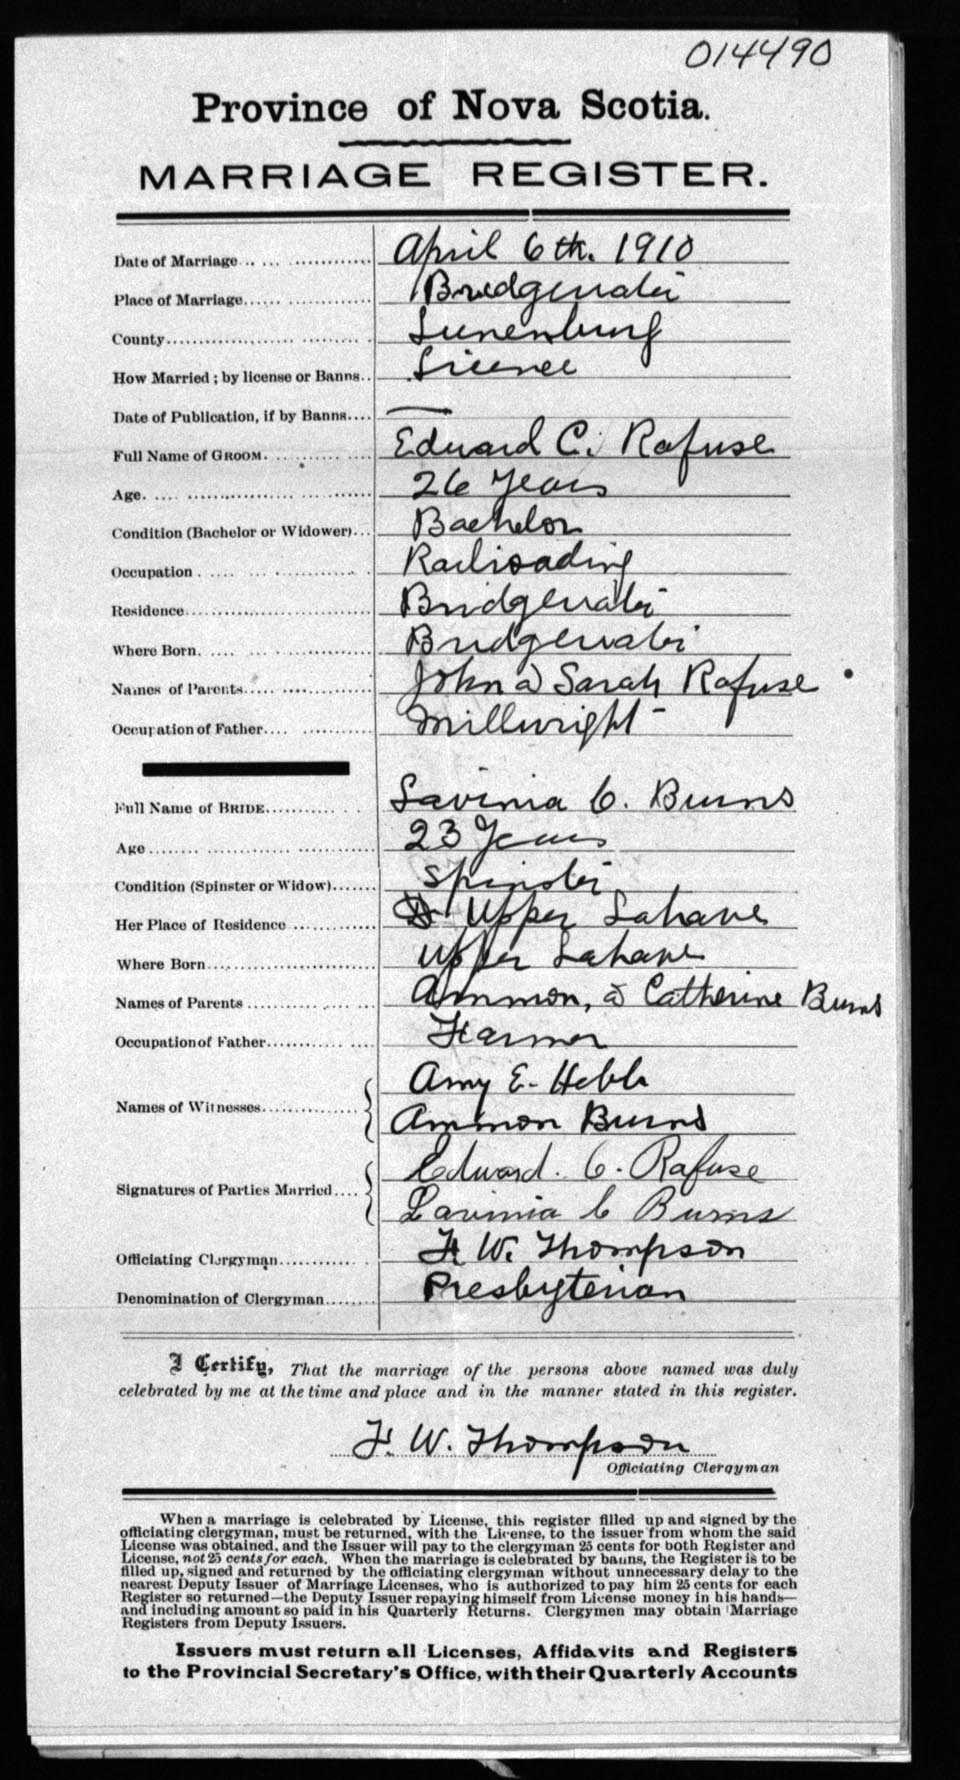 014490
Province of Nova Scotia.
MARRIAGE REGISTER.
Date of Marriage April 6th. 1910
Place of Marriage Bridgewater
County Lunenburg
How Married ; by license or Banns.. Licence
Date of Publication, if by Banns.... —
Full Name of GROOM. Edward C. Rafuse
Age. 26 Years
Condition (Bachelor or Widower)... Bachelor
Occupation Railroading
Residence Bridgewater
Where Born. Bridgewater
Names of Parents John & Sarah Rafuse
Occupation of Father Millwright
Full Name of BRIDE Lavinia C. Burns
Age 23 Years
Condition (Spinster or Widow) Spinster
Her Place of Residence Upper Lahave
Where Born Upper Lahave
Names of Parents Ammon, & Catherine Burns
Occupation of Father Farmer
Names of Witnesses Amy E. Hebb
Ammon Burns
Signatures of Parties Married Edward. C. Rafuse
Lavinia C Burns
Officiating Clergyman F. W. Thompson
Denomination of Clergyman Presbyterian
I Certify, That the marriage of the persons above named was duly
celebrated by me at the time and place and in the manner stated in this register.
F. W. Thompson
Officiating Clergyman
When a marriage is celebrated by License, this register filled up and signed by the
officiating clergyman, must be returned, with the License, to the issuer from whom the said
License was obtained, and the Issuer will pay to the clergyman 25 cents for both Register and
License, not 25 cents for each. When the marriage is celebrated by banns, the Register is to be
filled up, signed and returned by the officiating clergyman without unnecessary delay to the
nearest Deputy Issuer of Marriage Licenses, who is authorized to pay him 25 cents for each
Register so returned—the Deputy Issuer repaying himself from License money in his hands—
and including amount so paid in his Quarterly Returns. Clergymen may obtain Marriage
Registers from Deputy Issuers.
Issuers must return all Licenses, Affidavits and Registers
to the Provincial Secretary's Office, with their Quarterly Accounts